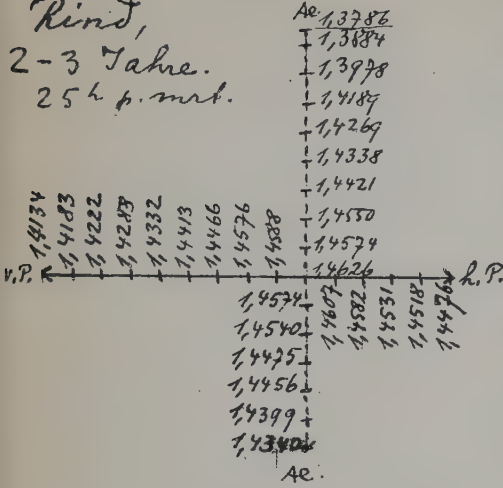 Rind,
2-3 Jahre.
25h p. mrt.
Ae.
1,3786
1,3884
1,3978
1,4189
1,4269
1,4338
1,4421
1,4550
1,4574
1,4626
v.P.
1,4134
1,4183
1,4222
1,4283
1,4332
1,4413
1,4466
1,4576
1,4588
h.P.
1,4607
1,4582
1,4531
1,4518
1,4476
1,4574
1,4540
1,4475
1,4456
1,4399
1,4340
Ae.